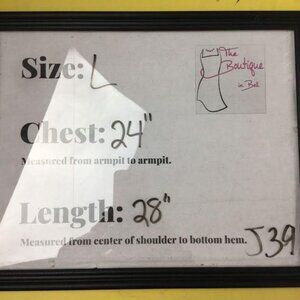 Size: L
The
Boutique
in Bell
Chest: 24"
Measured from armpit to armpit.
Length: 28"
Measured from center of shoulder to bottom hem.
J39